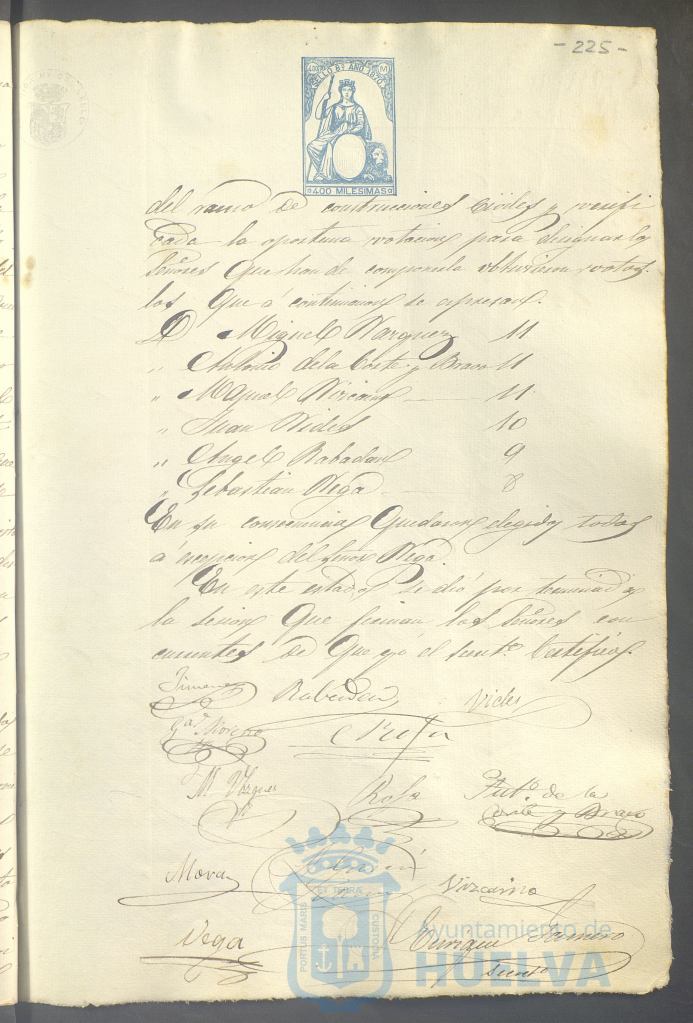 - 225 -
SELLO 8º AÑO 1870
400 MILESIMAS
del ramo de construcciones Civiles y verifi
cada la oportuna votacion para designar los
Señores que han de componerla obtuvieron votos
los que á continuacion se espresan.
D Miguel Vazquez 11
" Antonio de la Corte y Bravo 11
" Manuel Vizcaino 11
" Juan Vides 10
" Angel Rabadan 9
" Sebastian Vega 8
En su consecuencia quedaron elegidos todos
á escepcion del Señor Vega.
En este estado se dió por terminada
la sesion que firman los Señores con
currentes de que yo el Sectº. Certifico.
Jimenez Rabadan Vides
Gª. Moreno
M. Vazquez Rofa Antº. de la
Corte y Bravo
Mora Vizcaino
Vega Enrique
PORTUS MARIS ET TERRÆ CUSTODIA
Ayuntamiento de
HUELVA